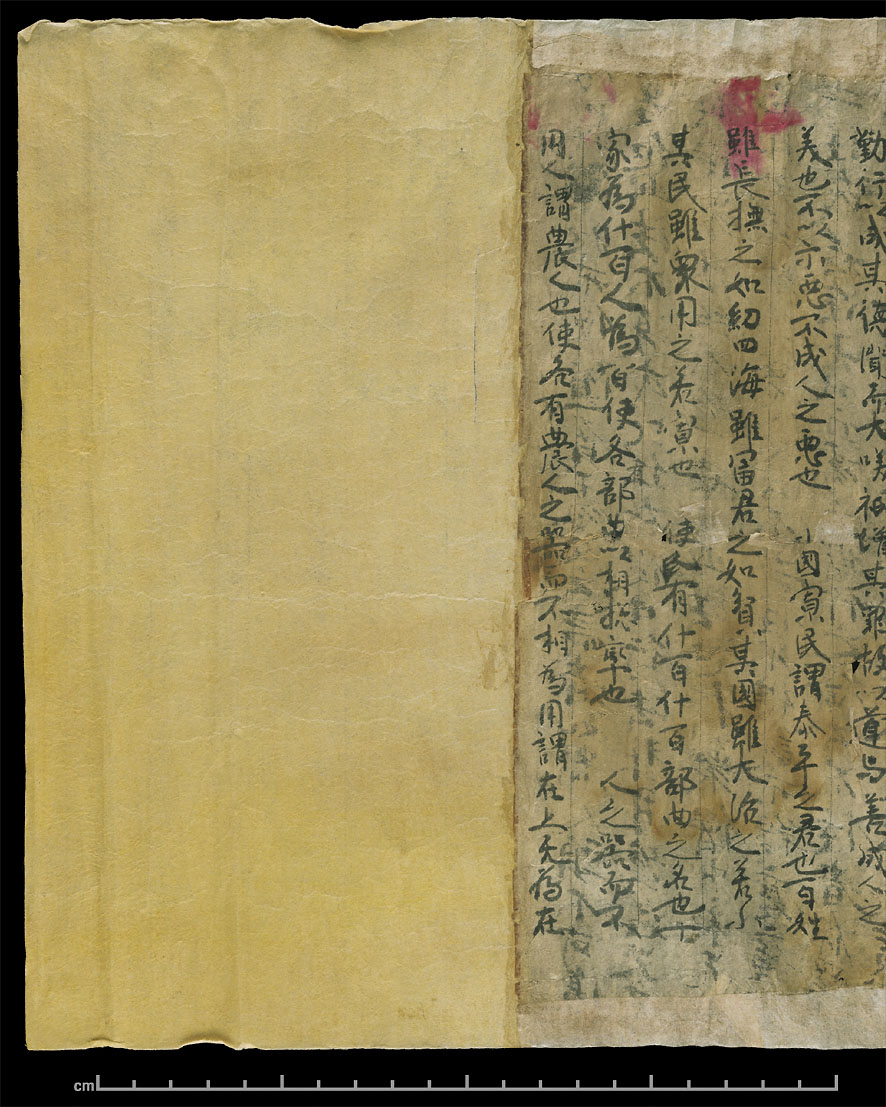 勤行以成其德聞而大咲祇增其罪故以遵与善成人之
美也不以示惡不成人之惡也 小國寡民謂泰平之君也百姓
雖長撫之如幼四海雖冨君之如貧其國雖大治之若小
其民雖衆用之若寡也 使民有什百什百部曲之名也十
家為什百人為百使各部曲以相捴率也 人之器而不
用人謂農人也使各有農人之器而不相為用謂在上无為在
cm